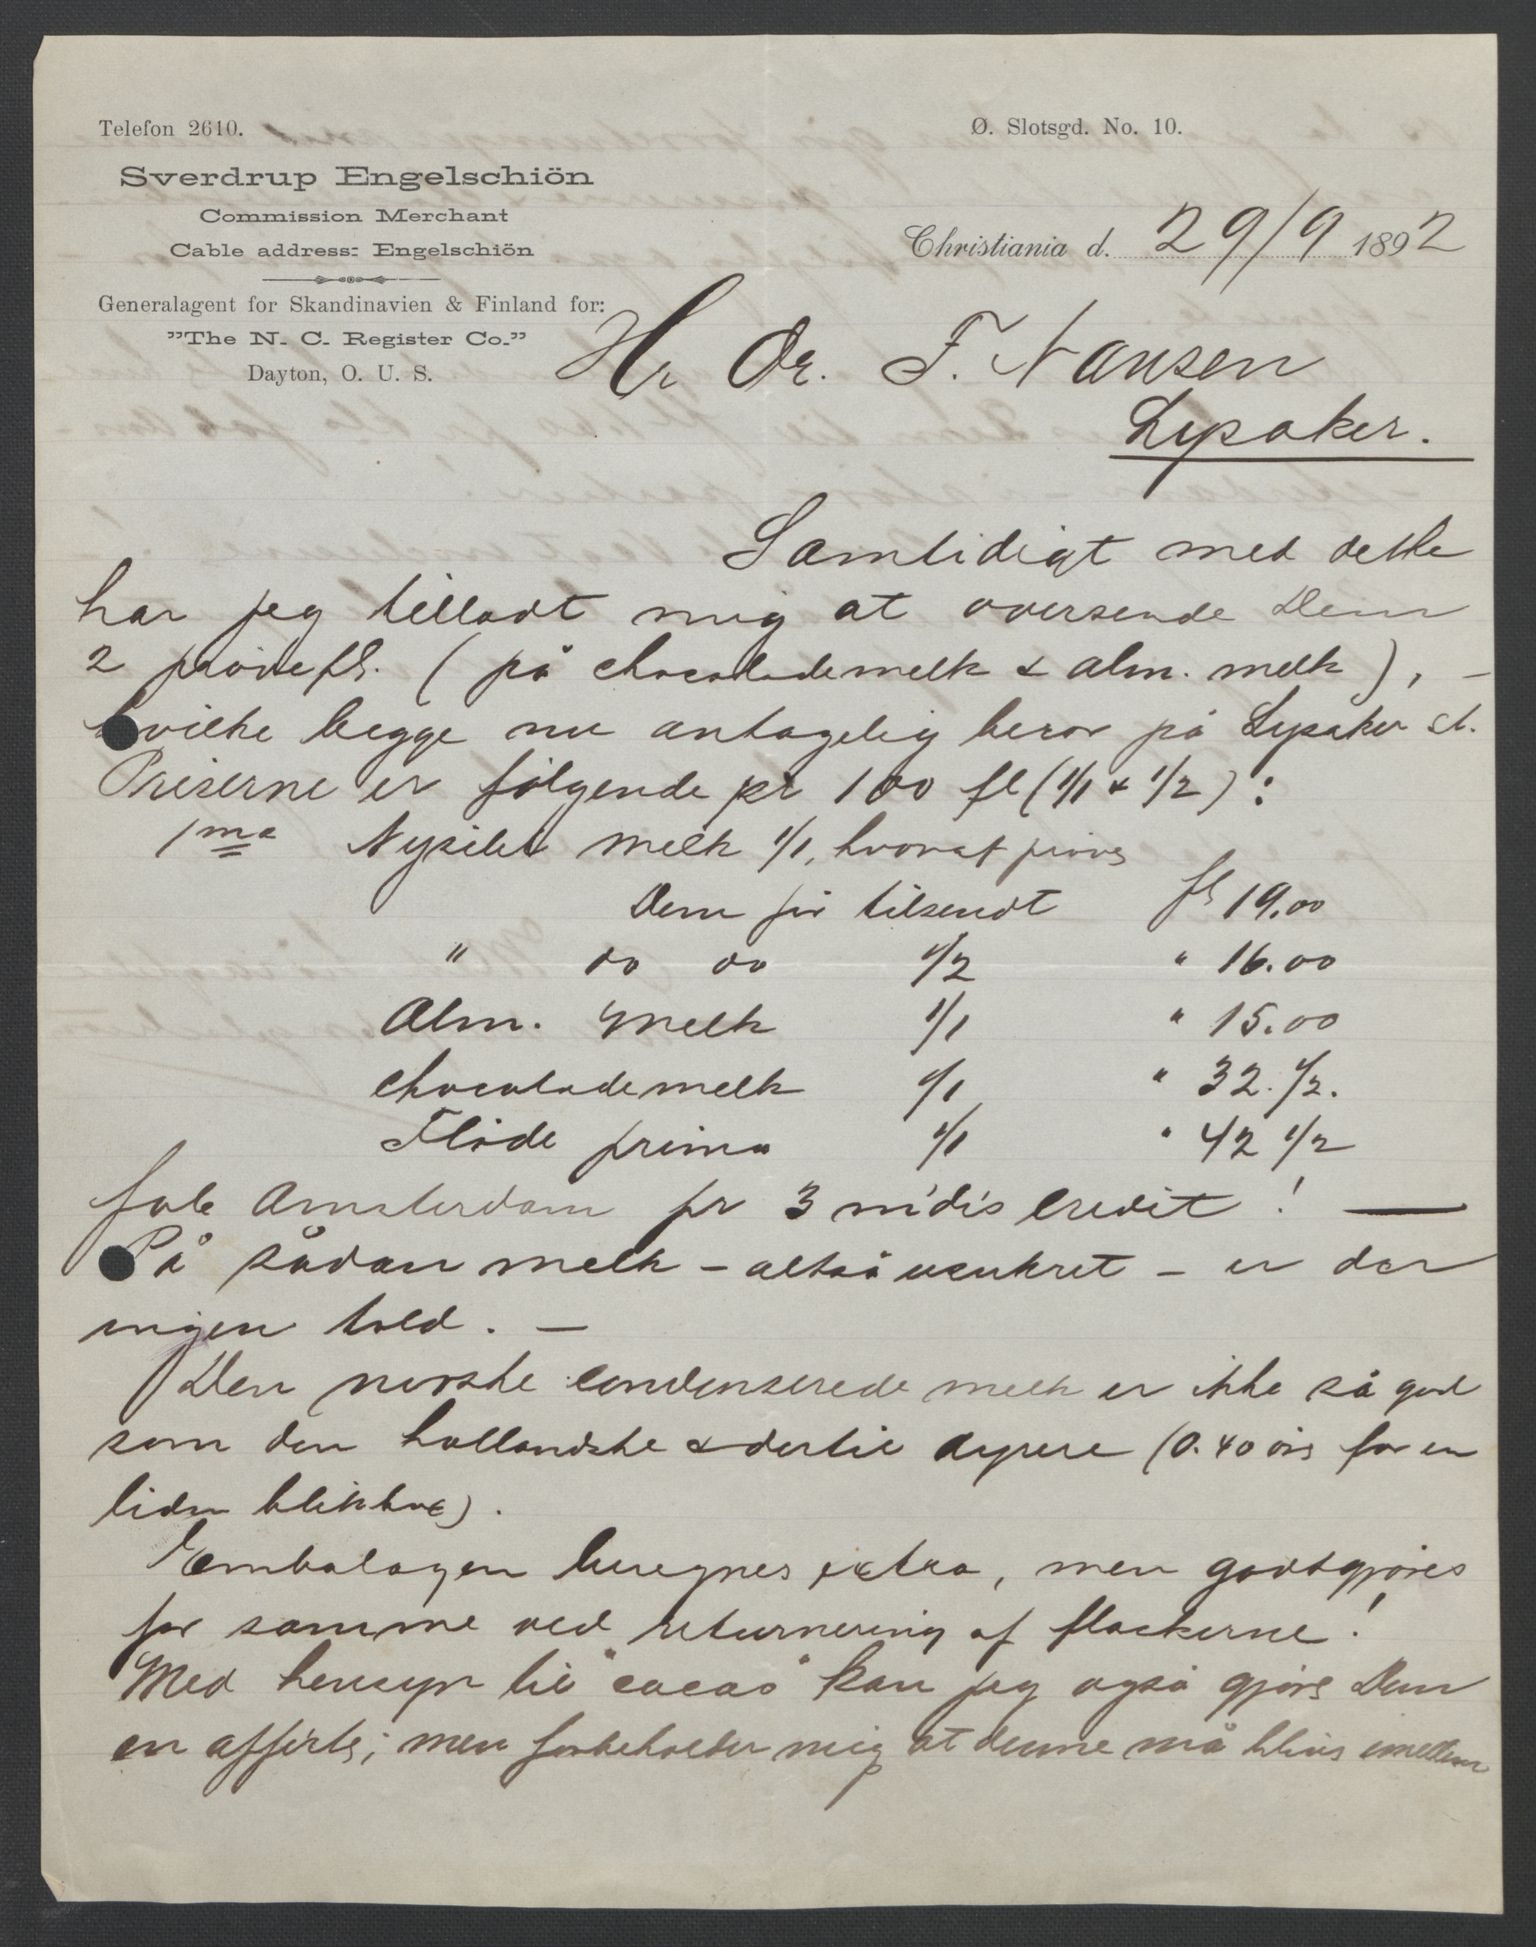 Telefon 2610.
Ø. Slotsgd. No. 10.
Sverdrup Engelschiön
Commission Merchant
Cable address: Engelschiön
Generalagent for Skandinavien & Finland for:
"The N. C. Register Co."
Dayton, O. U. S.
Christiania d. 29/9 1892
Hr Dr. F. Nansen
Lysaker.
Samtidigt med dette
har jeg tilladt mig at oversende Dem
2 prövefl. (på chocolademelk & alm. melk), –
hvilke begge nu antagelig beror på Lysaker st.
Priserne er følgende pr 100 fl (1/1 & 1/2):
1ma Nysilet melk 1/1, hvoraf prøve
Dem før tilsendt fl 19.00
" do do 1/2 " 16.00
Alm. melk 1/1 " 15.00
chocolademelk 1/1 " 32. 1/2.
Fløde prima 1/1 " 42 1/2
fob Amsterdam pr 3 m/ds credit! —
På sådan melk – altså usukret – er der
ingen told. –
Den norske condenserede melk er ikke så god
som den hollandske & dertil dyrere (0.40 øre for en
liden blikbox).
Embalagen beregnes extra, men godtgjøres
for samme ved returnering af flaskerne!
Med hensyn til "cacao" kan jeg også gjøre Dem
en offerte; men forbeholder mig at denne må blive imellem